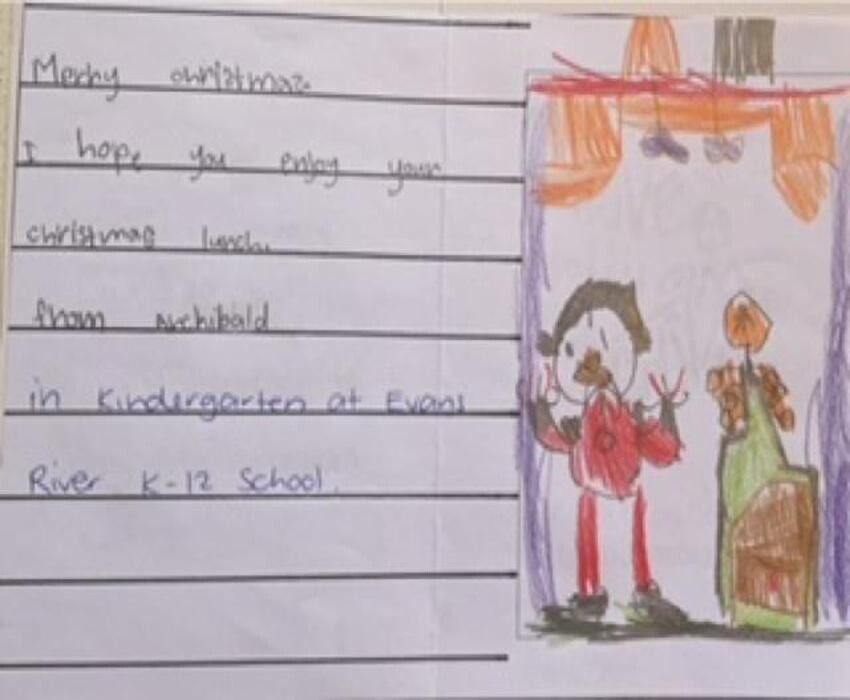 Merry christmas
I hope you enjoy your
christmas lunch.
from Archibald
in Kindergarten at Evans
River K-12 School.